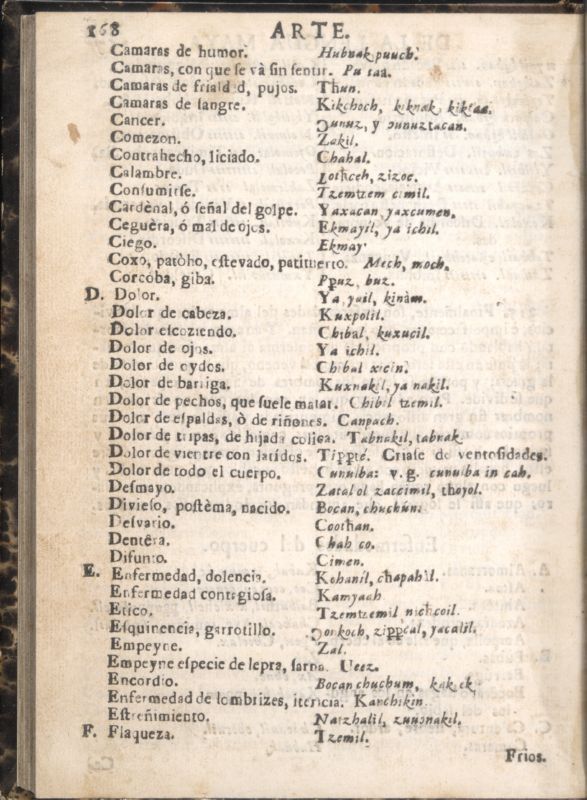 168 ARTE.
Camaras de humor. Hubnak puuch.
Camaras, con que se và sin sentir. Pu taa.
Camaras de frialdad, pujos. Thun.
Camaras de sangre. Kikchoch, kiknak, kiktaa.
Cancer. Ɔunuz, y ɔunuztacan.
Comezon. Zakil.
Contrahecho, liciado. Chahal.
Calambre. Lothceh, zizoc.
Consumirse. Tzemtzem cimil.
Cardènal, ó señal del golpe. Yaxacan, yaxcumen.
Ceguèra, ó mal de ojos. Ekmayil, ya ichil.
Ciego. Ekmay
Coxo, patòho, estevado, patituerto. Mech, moch.
Corcoba, giba. Ppuz, buz.
D. Dolor. Ya, yail, kinàm.
Dolor de cabeza. Kuxpolil.
Dolor escoziendo. Chibal, kuxucil.
Dolor de ojos. Ya ichil.
Dolor de oydos. Chibal xicin.
Dolor de barriga. Kuxnakil, ya nakil.
Dolor de pechos, que suele matar. Chibil tzemil.
Dolor de espaldas, ò de riñones. Canpach.
Dolor de tripas, de hijada colica. Tabnakil, tabnak
Dolor de vientre con latidos. Tippté. Criase de ventosidades.
Dolor de todo el cuerpo. Cunulba: v.g. cunulba in cah.
Desmayo. Zatalol zaccimil, thoyol.
Divieso, postèma, nacido. Bocan, chuchun.
Desvario. Coothan.
Dentêra. Chab co.
Difunto. Cimen.
E. Enfermedad, dolencia. Kohanil, chapahil.
Enfermedad contagiosa. Kamyach
Etico. Tzemtzemil nichcoil.
Esquinencia, garrotillo. Ɔotkoch, zippcal, yacalil.
Empeyne. Zal.
Empeyne especie de lepra, sarna. Ueez.
Encordio. Bocan chuchum, kakck
Enfermedad de lombrizes, itericia. Kanchikin
Estreñimiento. Natzhalil, zuuɔnakil.
F. Flaqueza. Tzemil.
Frios.